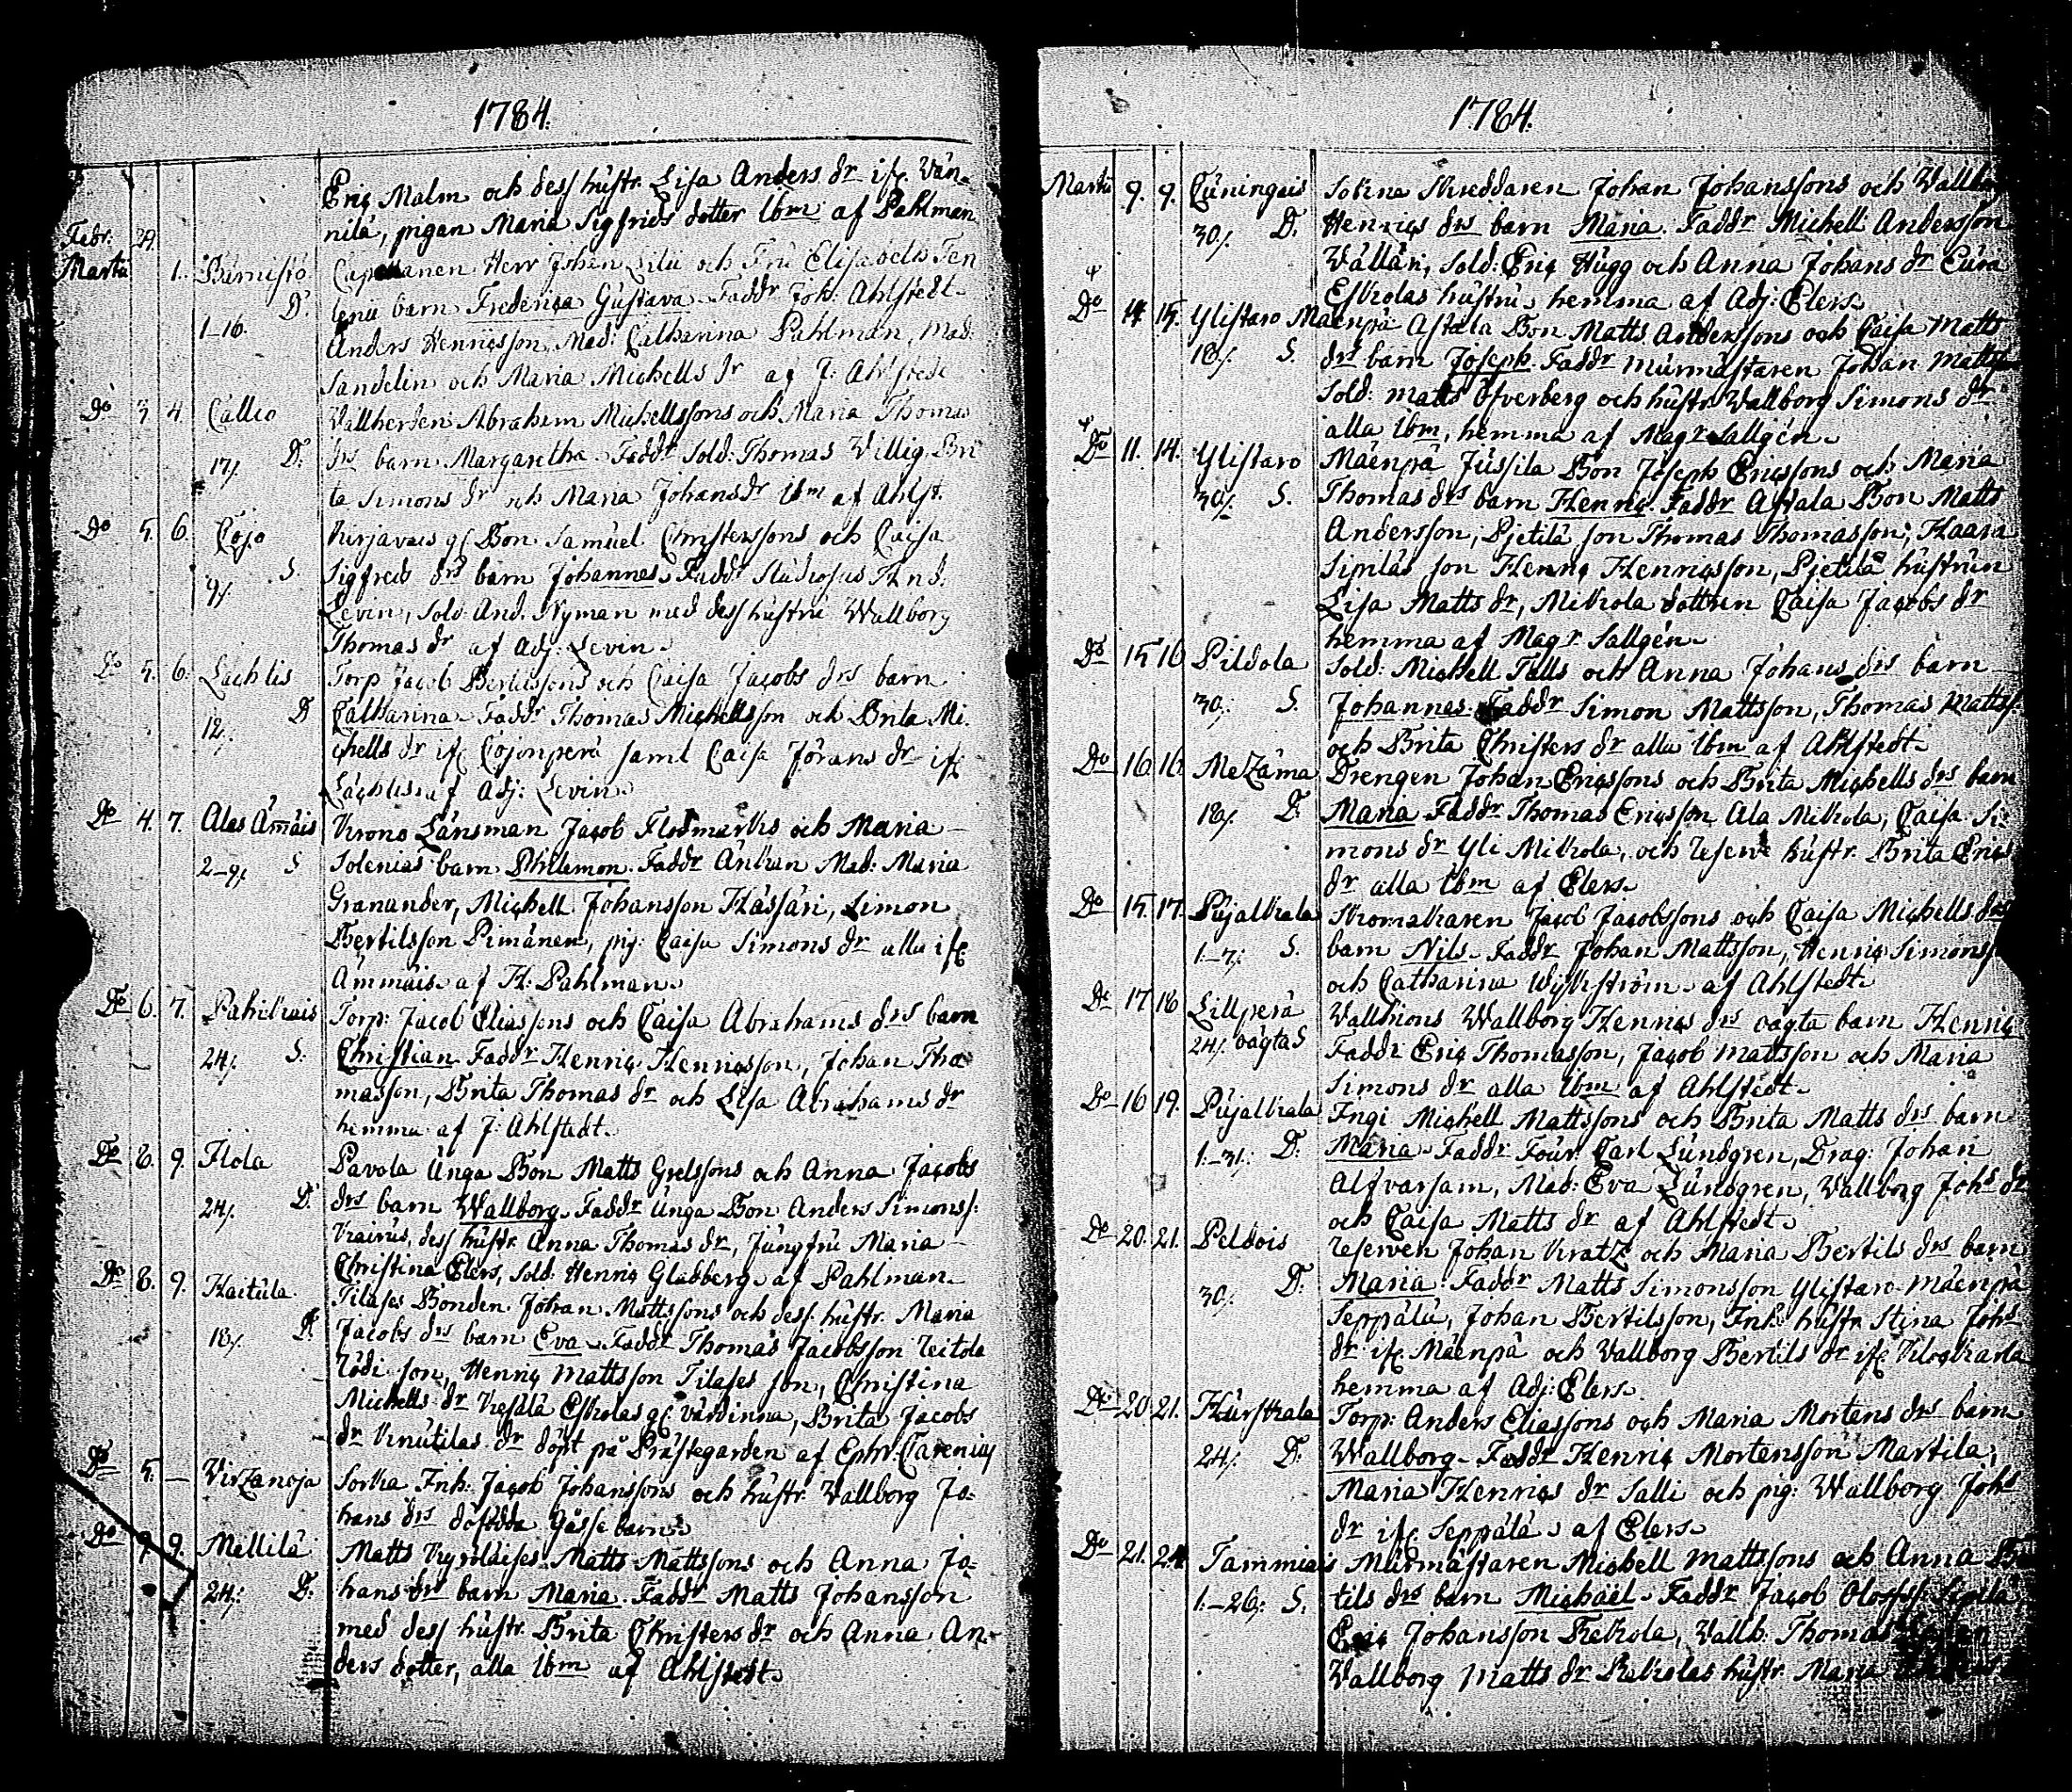 1784.
Eric Malm och dess hustr. Lisa Anders dr ifr. Vän-
nilä, pigan Maria Sigfrids dotter ibm af Pahlman
Febr: 29.
Martii 1. Pämistö Capellanen Herr Johan Lilii och Fru Elisabeth Fen
D. lenii barn Fredrica Gustava. Faddr Joh: Ahlstedt
1-16. Anders Henricsson, Mad: Catharina Pahlman, Mad:
Sandelin och Maria Michells dr af J: Ahlstedt
Do 3 4 Callio Vallherden Abraham Michellssons och Maria Thomas
17/. D. drs barn Margaretha. Faddr Sold: Thomas Villig, Bri
ta Simons dr och Maria Johans dr ibm af Ahlst.
Do 5. 6. Cojo Kirjavais gl Bon. Samuel Christerssons och Caisa
S. Sigfreds drs barn Johannes. Faddr Studiosus And.
9/. Levin, Sold. And. Nyman med dess hustru Wallborg
Thomas dr af Adj: Levin.
Do 5. 6. Lächlis Torp Jacob Bertilssons och Caisa Jacobs drs barn
12/. D Catharina. Faddr Thomas Michellsson och Brita Mi-
chells dr ifr Cojonperä samt Caisa Jörans dr ifr
Lächlis af Adj: Levin.
Do 4. 7. Alas Ämäis Krono Länsman Jacob Flodmarks och Maria
2-9/. S Solenias barn Philemon. Faddr Änkan Mad: Maria
Granander, Michell Johansson Hässäri, Simon
Bertilsson Pimänen, pig: Caisa Simons dr alla ifr
Ämmäis af H: Pahlman.
Do 6. 7. Pahikais Torp: Jacob Eliassons och Caisa Abrahams drs barn
24/. S. Christian. Faddr Henric Henricsson, Johan Tho-
masson, Brita Thomas dr och Lisa Abrahams dr
hemma af J: Ahlstedt.
Do 8. 9. Flola Pavola Unga Bon Matts Grelssons och Anna Jacobs
24/. D. drs barn Wallborg. Faddr Unga Bon Anders Simonss:
Krairus, dess hustr. Anna Thomas dr, Jungfru Maria
Christina Elers, Sold: Henric Gladberg af Pahlman.
Do 8. 9. Haitula. Tilases Bonden Johan Mattssons och dess hustr. Maria
18/. D. Jacobs drs barn Eva. Faddr Thomas Jacobsson Reitola
Rödi son, Henric Mattsson Tilases son, Christina
Michells dr Kesälä Eskolas gl värdinna, Brita Jacobs
dr Knutilas dr döpt på Prästegården af Ephr: Carenius
Do 5. — Virzanoja Sorka Inh: Jacob Johanssons och hustr. Wallborg Jo-
hans drs dödfödda Gosse barn.
Do 9. 9. Mellilä Matts Kyrölaises Matts Mattssons och Anna Jo-
24/. D. hans drs barn Maria. Faddr Matts Johansson
med dess hustr. Brita Christers dr och Anna An-
ders dotter, alla ibm af Ahlstedt.
1784.
Martii 9. 9. Cuningais Sokna Skreddaren Johan Johanssons och Wallb
30/. D. Henrics drs barn Maria. Faddr Michell Andersson
Vällari, Sold: Eric Hugg och Anna Johans dr Cura
Eskolas hustru hemma af Adj: Elers.
Do 14 15. Ylistaro Mäenpä Astala Bon Matts Anderssons och Caisa Matts
18/. S. drs barn Joseph. Faddr Murmästaren Johan Mattss
Sold: Matts Öfverberg och hustr Wallborg Simons dr
alla ibm, hemma af Magr Sallgén.
Do 11. 14. Ylistaro Mäenpä Jussila Bon Joseph Ericssons och Maria
30/. S. Thomas drs barn Henric. Faddr Astala Bon Matts
Andersson, Pjetilä son Thomas Thomasson, Haara
Sipiläs son Henric Henricsson, Pjetilä hustrun
Lisa Matts dr, Mikola dottren Caisa Jacobs dr
hemma af Magr Sallgén.
Do 15 16 Pildola Sold: Michell Talls och Anna Johans drs barn
30/. S. Johannes. Faddr Simon Mattsson, Thomas Mattss:
och Brita Christers dr alla ibm af Ahlstedt.
Do 16. 16. Mezäma Drengen Johan Ericssons och Brita Michells drs barn
18/. D. Maria. Faddr Thomas Ericsson Ala Mikola, Caisa Si-
mons dr Yli Mikola, och Reserve hustr. Brita Erics
dr alla ibm af Elers.
Do 15. 17. Pujalkala Skomakaren Jacob Jacobssons och Caisa Michells drs
1.-7/. S. barn Nils. Faddr Johan Mattsson, Henric Simons
och Catharina Wijkström af Ahlstedt.
Do 17 18 Lillperä Vallhions Wallborg Henrics drs oägta barn Henric
24/. oägta S Faddr Eric Thomasson, Jacob Mattsson och Maria
Simons dr alla ibm af Ahlstedt.
Do 16 19. Pujalkala Ingi Michell Mattssons och Brita Matts drs barn
1.-31/. D. Maria. Faddr Four. Carl Lundgren, Drag: Johan
Alfvarsam, Mad: Eva Lundgren, Wallborg Johs dr
och Caisa Matts dr af Ahlstedt.
Do 20. 21. Peldois Reserven Johan Kratz och Maria Bertils drs barn
30/. D. Maria. Faddr Matts Simonsson Ylistaro Mäenpä
Seppälä, Johan Bertilsson, Inh: hustr Stina Johs
dr ifr Mäenpä och Wallborg Bertils dr ifr Kilogkarla
hemma af Adj: Elers.
Do 20. 21. Hurskala Torp: Anders Eliassons och Maria Mortens drs barn
24/. D. Wallborg. Faddr Henric Mortensson Martila,
Maria Henrics dr Salli och pig: Wallborg Johs
dr ifr Seppälä af Elers.
Do 21. 24. Tammiais Murmästaren Michell Mattssons och Anna B
1.-26/. S. tils drs barn Michäel. Faddr Jacob Olofss
Eric Johansson Rekola, Vallb. Thomas
Wallborg Matts dr Rakolas hustr. Maria